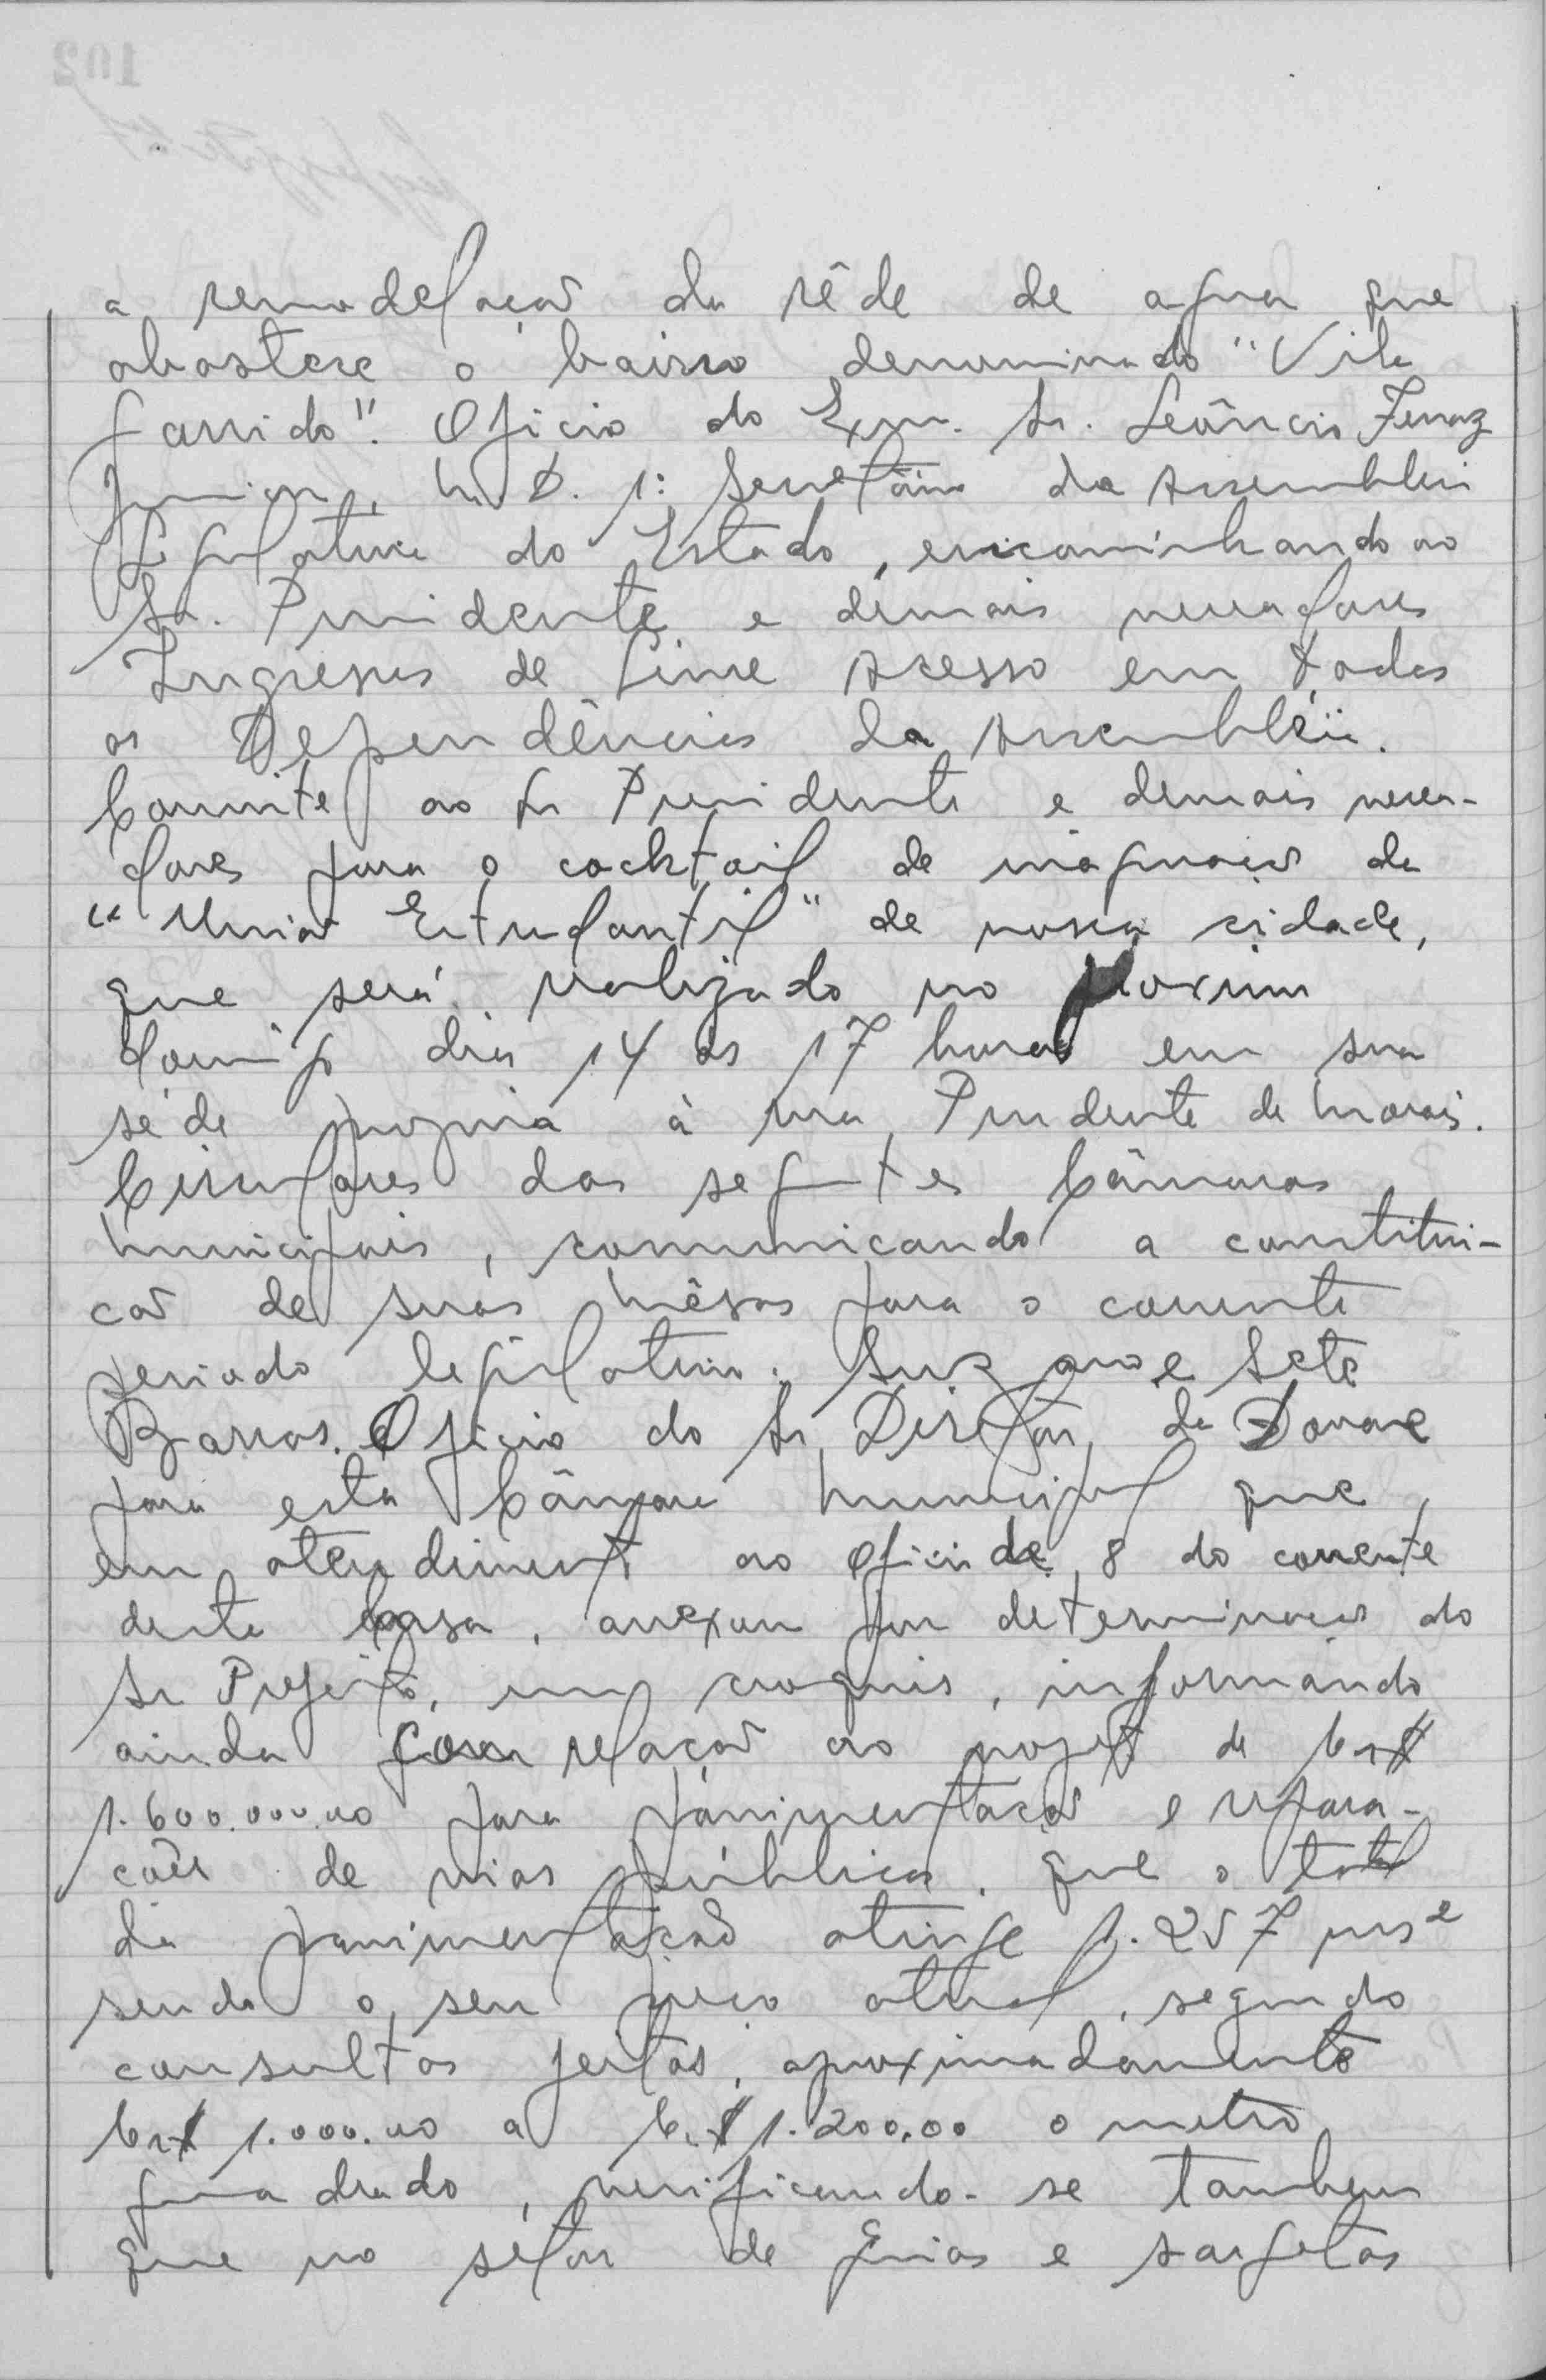 a remodelação da rêde de agua que
abastece o bairro denominado "Vila
Garrido". Oficio do Exm. Sr. Leôncio Ferraz
Junior, M. D. 1º Secretário da Assembleia
Legislativa do Estado, encaminhando ao
Sr. Presidente e demais vereadores
Ingressos de Livre Acesso em todas
as Dependências da Assembléia.
Convite ao Sr Presidente e demais verea-
dores para o cocktail de inauguração da
"União Estudantil" de nossa cidade,
que será realizado no proximo
domingo dia 14 as 17 horas em sua
séde propria à rua Prudente de Morais.
Circulares das seguintes Câmaras
Municipais, comunicando a constitui-
ção de suas Mêsas para o corrente
periodo legislativo: Suzano e Sete
Barras. Oficio do Sr. Diretor da
para esta Câmara Municipal que,
em atendimento ao oficio de 8 do corrente
desta Casa, anexou por determinação do
Sr Prefeito, um croquis, informando
ainda com relação ao projeto de Cr$
1.600.000.00 para pavimentação e repara-
ções de vias públicas, que o total
da pavimentação atinge 1.257 ms²
sendo o seu preço atual, segundo
consultas feitas, aproximadamente
Cr$ 1.000.00 a Cr$ 1.200.00 o metro
quadrado, verificando-se tambem
que no setor de guias e sargetas